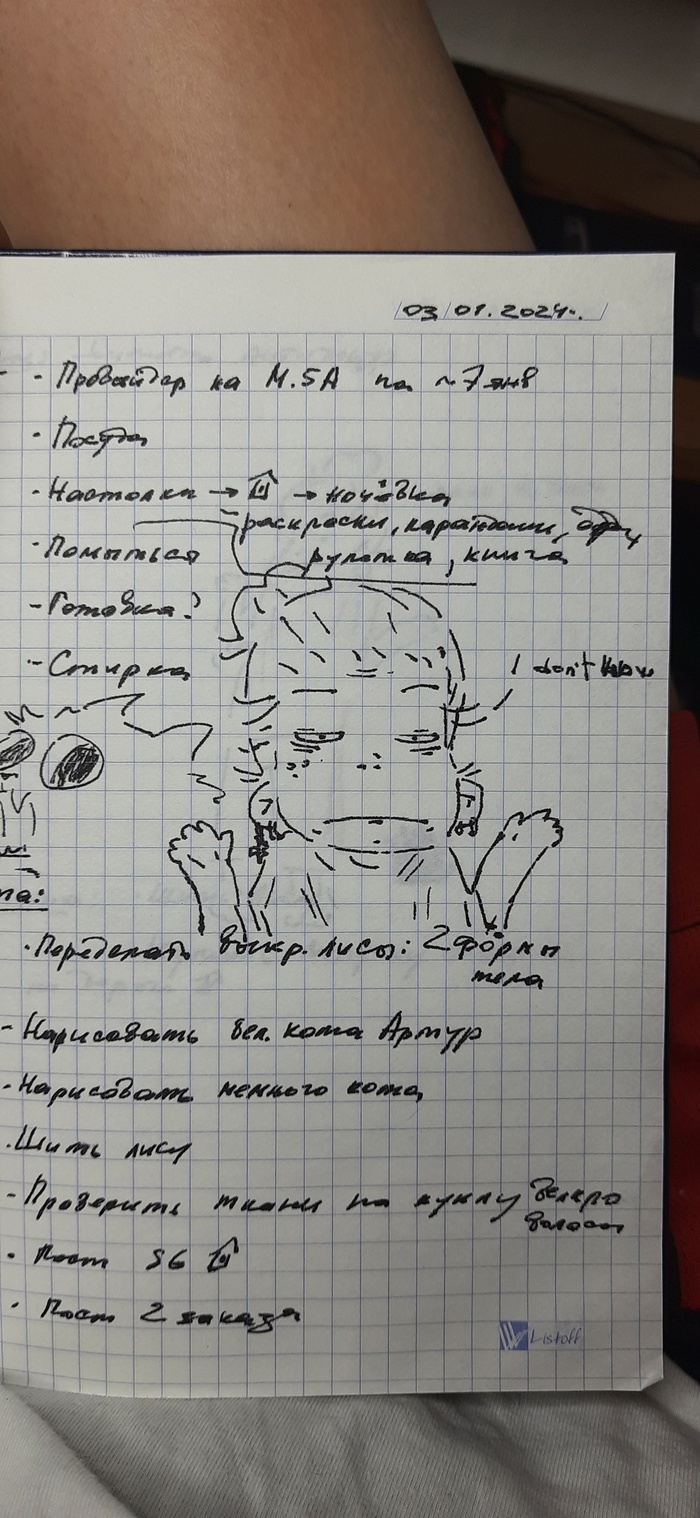 03/01.2024г.
- Провайдер на М.5А на ~7 янв
· Посуда
· Настолки → → ночёвка
- раскраски, карандаши,
· Помыться рулетка, книга
- Готовка?
- Стирка
I don't know
па:
· Переделать выкр. лисы: 2 формы
тела
- Нарисовать бел. кота Артур
- Нарисовать немного кота
· Шить лису
- Проверить ткани на куклу велкро
волосы
· Пост 56
· Пост 2 заказа
Listoff